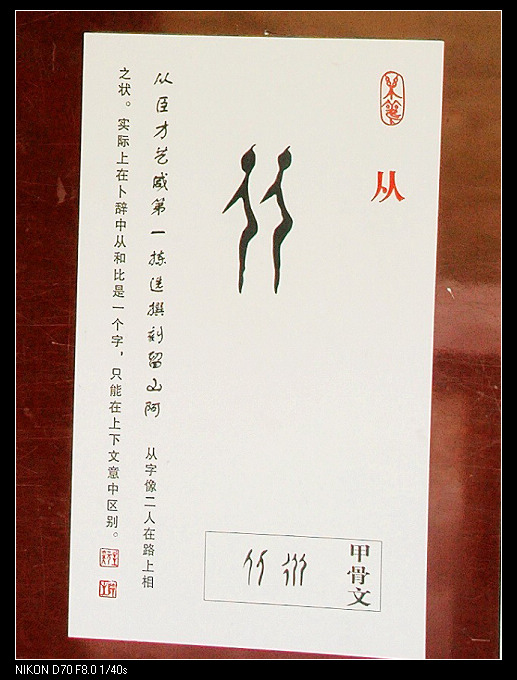 从
甲骨文
从臣才艺咸第一拣选撰刻留山阿 从字像二人在路上相
之状。实际上在卜辞中从和比是一个字，只能在上下文意中区别。
NIKON D70 F8.0 1/40s